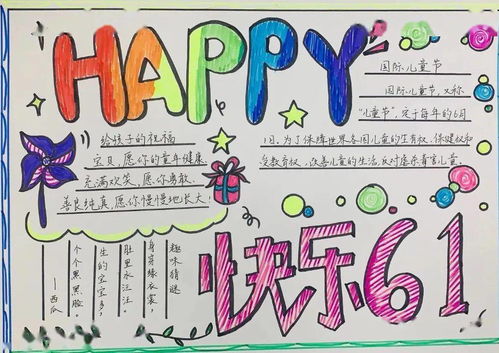 HAPPY
国际儿童节
国际儿童节，又称
“儿童节”，定于每年的6月
1日。为了保障世界各国儿童的生存权、保健权和
受教育权，改善儿童的生活，反对虐杀毒害儿童。
给孩子的祝福
宝贝，愿你的童年健康
充满欢笑，愿你勇敢、
善良纯真，愿你慢慢地长大！
趣味猜谜
身穿绿衣裳，
肚里水汪汪。
生的宝宝多，
个个黑黑脸。
——西瓜
快乐61